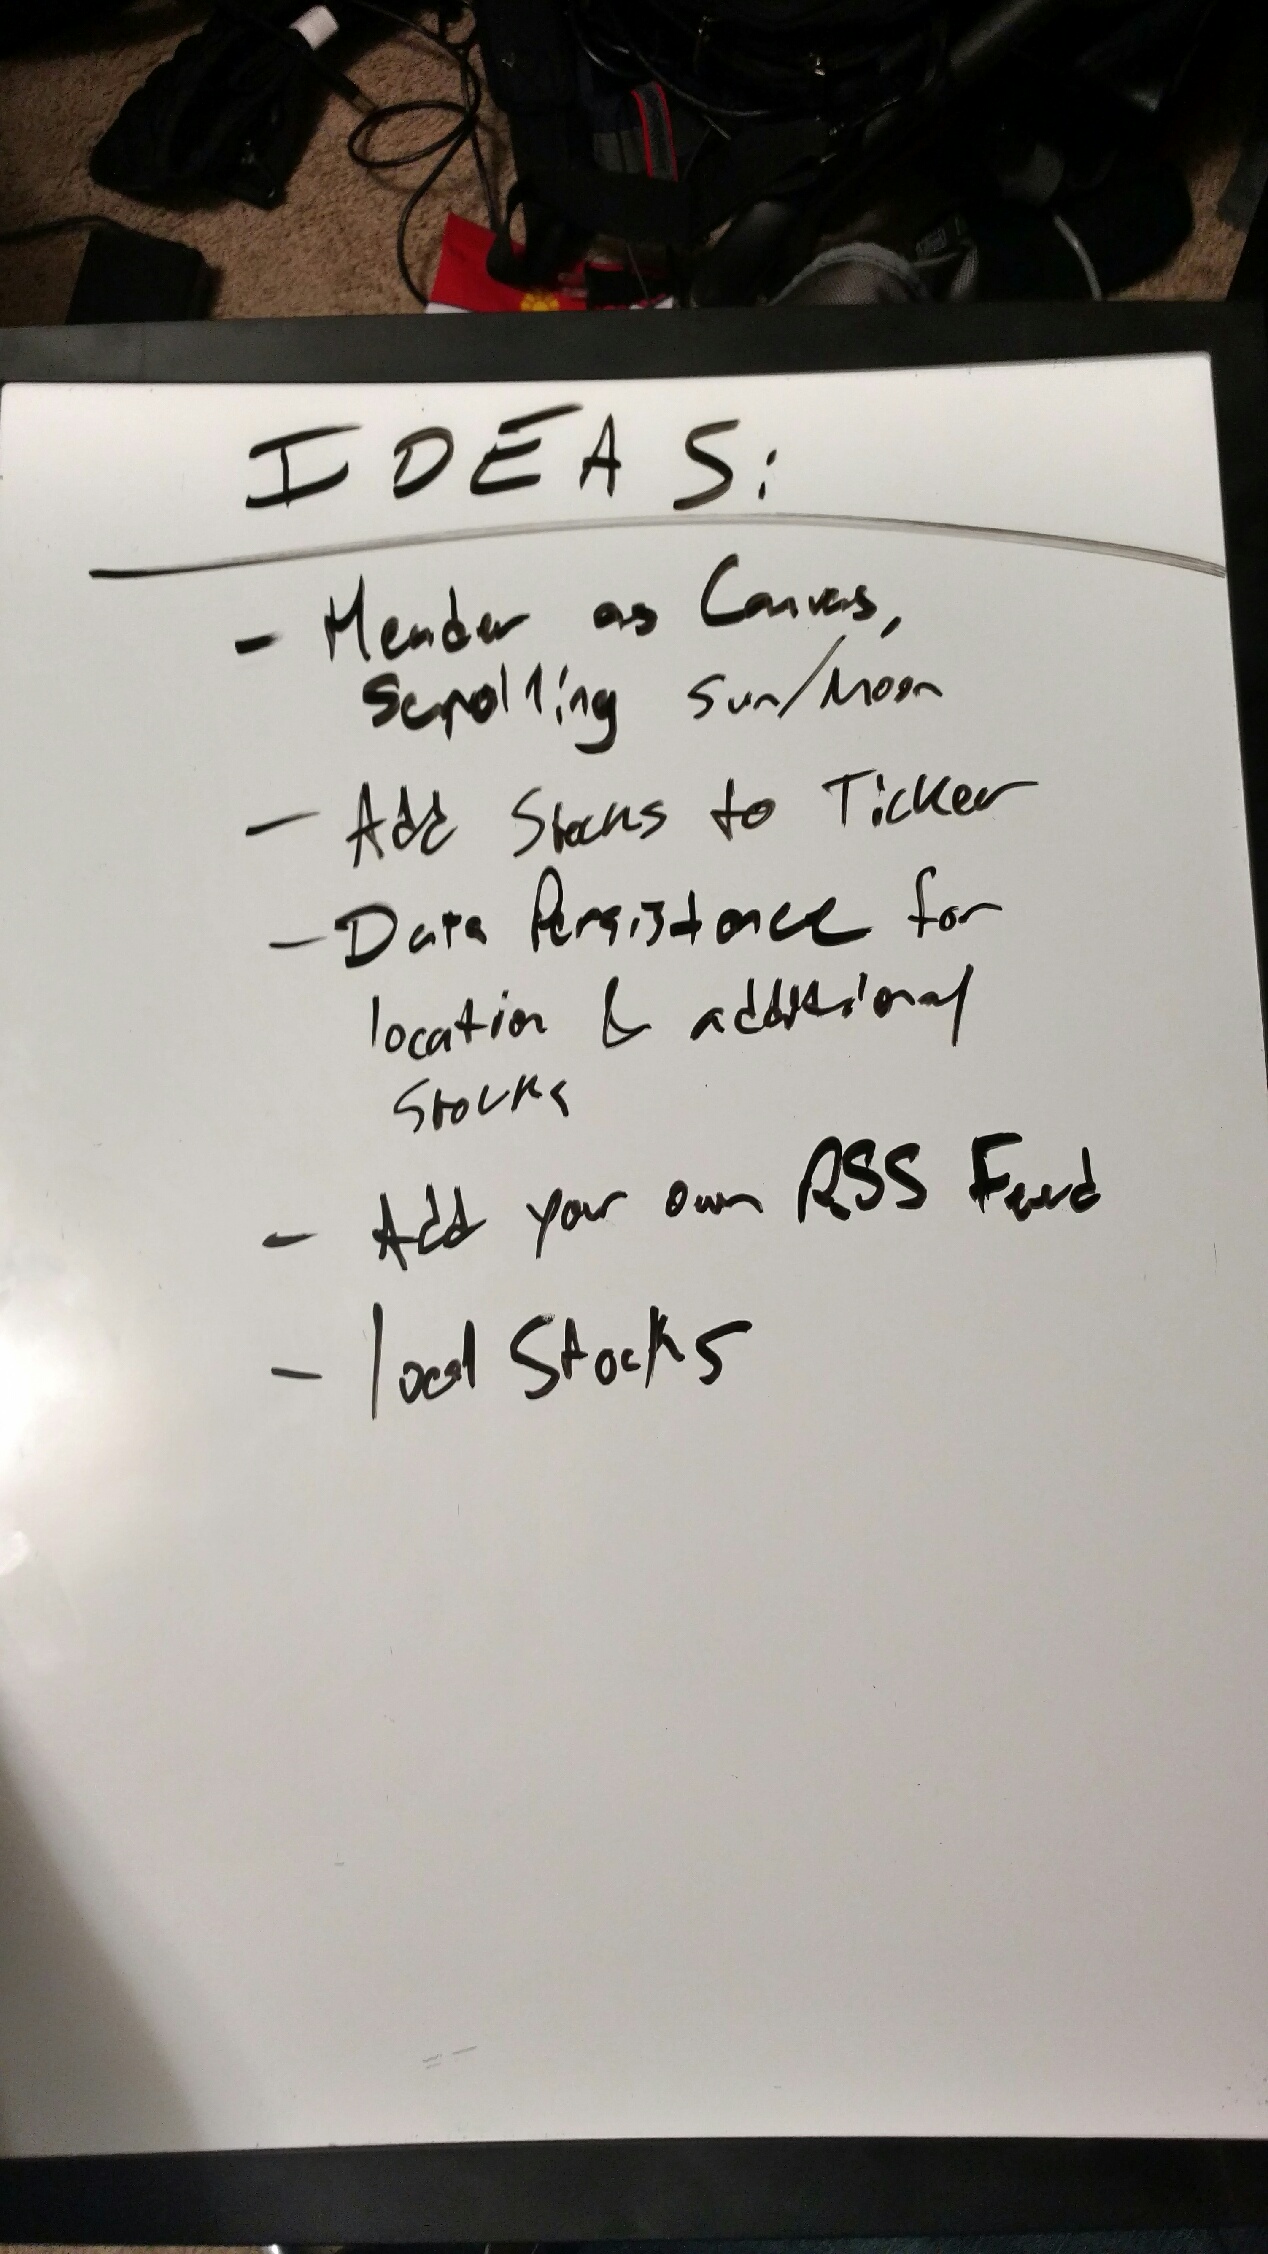 IDEAS:
- Header as Canvas,
Scrolling Sun/Moon
- Add Stocks to Ticker
- Data Persistence for
location & additional
Stocks
- Add your own RSS Feed
- local Stocks